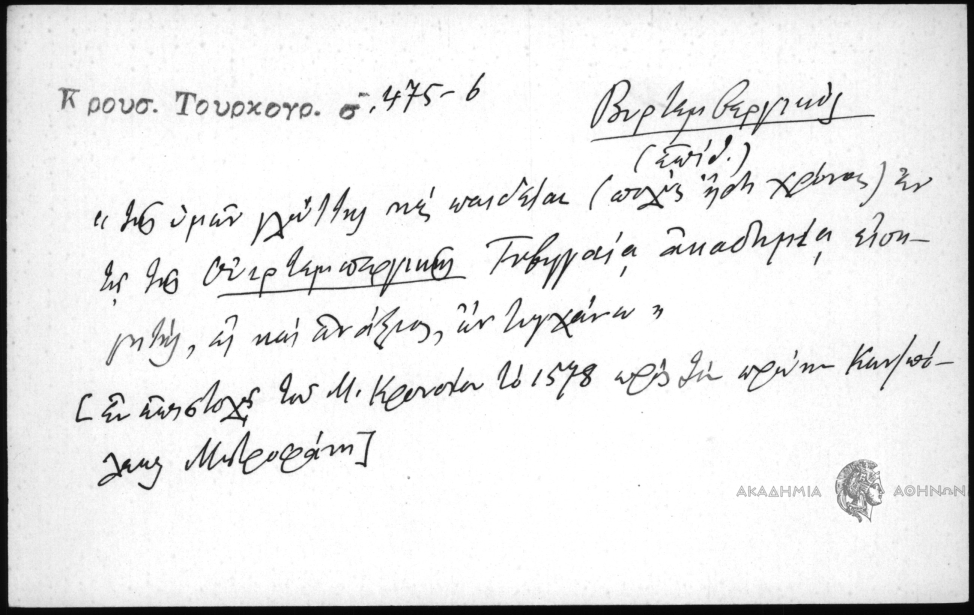 Κρουσ. Τουρκογρ. σ. 475-6
Βυρτεμβεργικός
(ἐπίθ.)
« τῆς ὑμῶν γλώττης καὶ παιδείας (πολὺς ἤδη χρόνος) ἐν
τῇ τῆς Οὐιρτεμπεργικῆς Τυβιγγαίᾳ ἀκαδημίᾳ εἰση-
γητής, εἰ καὶ ἀνάξιος, ὢν τυγχάνω »
[ἐν ἐπιστολῇ τοῦ Μ. Κρουσίου τὸ 1578 πρὸς τὸν πρώην Κων/πό-
λεως Μητροφάνη]
ΑΚΑΔΗΜΙΑ ΑΘΗΝΩΝ